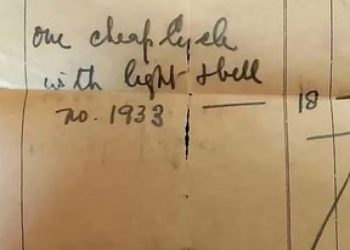 one cheap Cycle
with light & bell
no. 1933 — 18